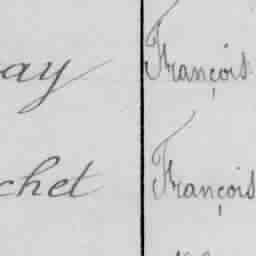 ay François
chet François